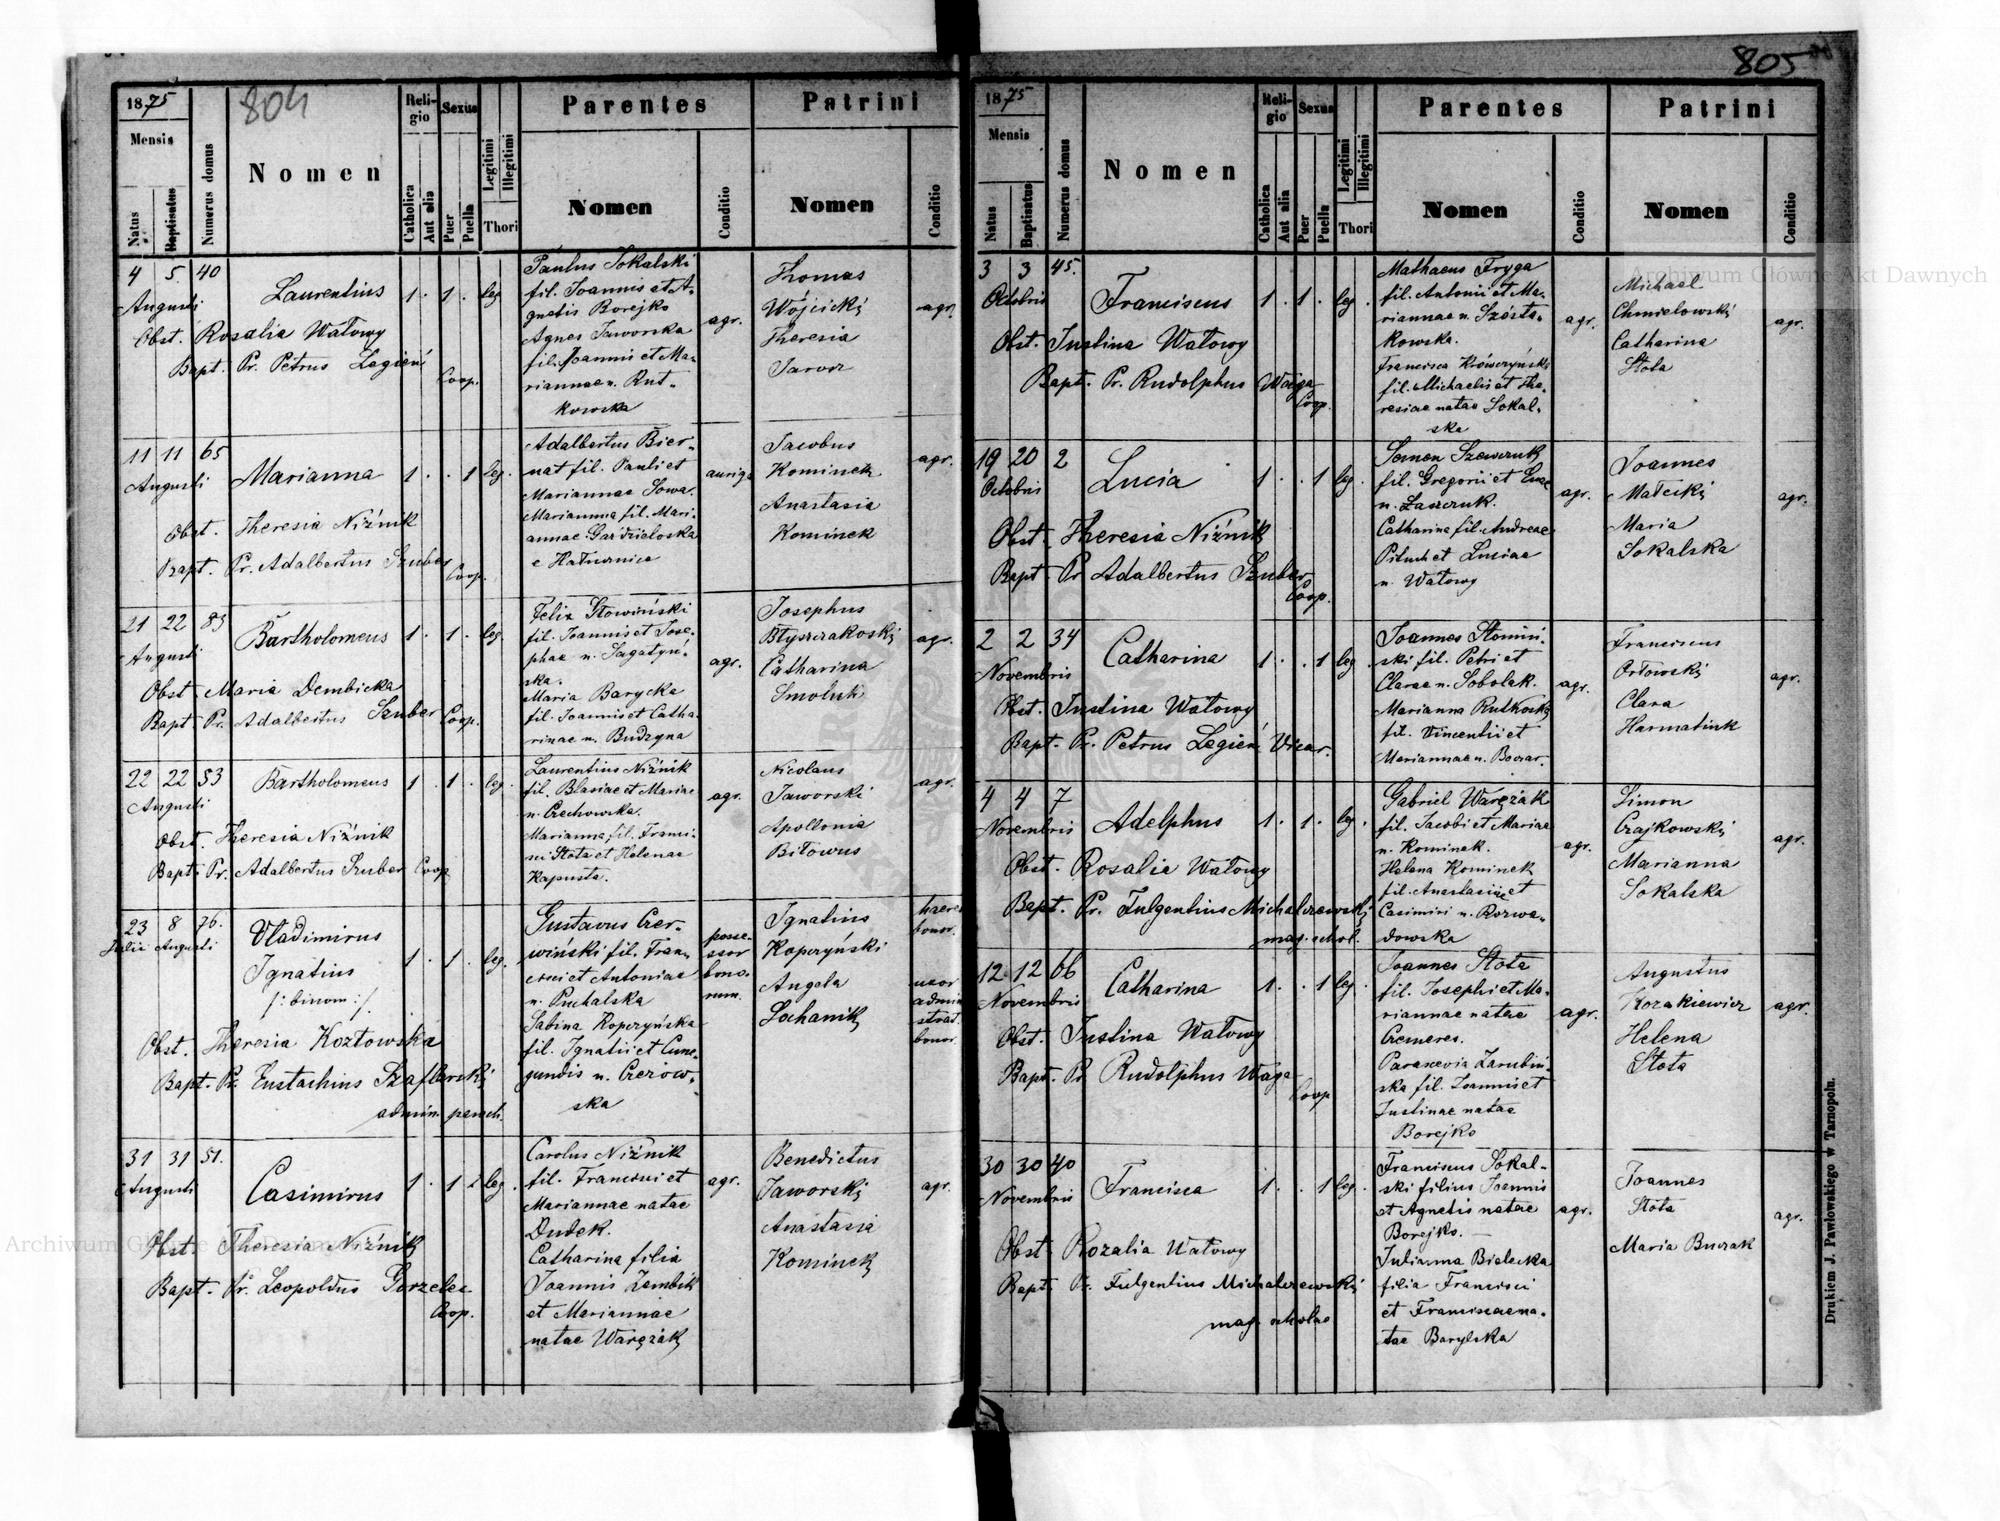 805
1875
804
Religio
Sexus
Legitimi
Illegitimi
Parentes
Patrini
Mensis
Numerus domus
Nomen
Nomen
Conditio
Nomen
Conditio
Natus
Baptisatus
Catholica
Aut alia
Puer
Puella
Thori
4 5 40
Augusti
Laurentius
1 . 1 . leg.
Paulus Sokalski
fil. Joannis et A-
gnetis Borejko
Agnes Jaworska
fil. Joannis et Ma-
riannae n. Rut-
kowska
agr.
Thomas
Wojcicki
Theresia
Jarosz
agr.
Obst. Rosalia Watowy
Bapt. Pr. Petrus Legień
Coop.
11 11 65
Augusti
Marianna
1 . . 1 leg.
Adalbertus Bier-
nat fil. Pauli et
Mariannae Sowa.
Marianna fil. Mari-
annae Gardzieloska
e Haturnica
auriga
Jacobus
Kominek
Anastasia
Kominek
agr.
Obst. Theresia Niżnik
Bapt. Pr. Adalbertus Szuber
Coop.
21 22 83
Augusti
Bartholomeus
1 . 1 . leg.
Felix Słowiński
fil. Joannis et Jose-
phae n. Sagatyń-
ska.
Maria Barycka
fil. Joannis et Catha-
rinae n. Budzyna
agr.
Josephus
Błyszczakoski
Catharina
Smoluk
agr.
Obst. Maria Dembicka
Bapt. Pr. Adalbertus Szuber Coop.
22 22 53
Augusti
Bartholomeus
1 . 1 . leg.
Laurentius Niżnik
fil. Blasiae et Mariae
n. Czechowska.
Marianna fil. Franci-
sci Stota et Helenae
Kapusta.
agr.
Nicolaus
Jaworski
Apollonia
Biłowus
agr.
Obst. Theresia Niżnik
Bapt. Pr. Adalbertus Szuber Coop
23 8 76.
Julii Augusti
Vladimirus
Ignatius
/: binom :/
1 . 1 . leg.
Gustavus Czer-
wiński fil. Fran-
cisci et Antoniae
n. Puchalska
Sabina Kopczyńska
fil. Ignatii et Cune-
gundis n. Czerow-
ska
posse-
ssor
bono-
rum.
Ignatius
Kopczyński
Angela
Lochanik
haeres
bonor.
uxor
admini
strat.
bonor.
Obst. Theresia Kozłowska
Bapt. Pr. Eustachius Szaflarski
admin. paroch.
31 31 51.
Augusti
Casimirus
1 . 1 . leg.
Carolus Niżnik
fil. Francisci et
Mariannae natae
Dudek.
Catharina filia
Joannis Zembik
et Mariannae
natae Warężak
agr.
Benedictus
Jaworski
Anastasia
Kominek
agr.
Obst. Theresia Niżnik
Bapt. Pr. Leopoldus Gorzelec
Coop.
1875
Religio
Sexus
Legitimi
Illegitimi
Parentes
Patrini
Mensis
Numerus domus
Nomen
Nomen
Conditio
Nomen
Conditio
Natus
Baptisatus
Catholica
Aut alia
Puer
Puella
Thori
3 3 45.
Octobris
Franciscus
1 . 1 . leg.
Mathaeus Fryga
fil. Antonii et Ma-
riannae n. Szósta-
kowska.
Francisca Krówczyńska
fil. Michaelis et The-
resiae natae Sokal-
ska
agr.
Michael
Chmielowski
Catharina
Stota
agr.
Obst. Justina Watowy
Bapt. Pr. Rudolphus Waga
Coop.
19 20 2
Octobris
Lucia
1 . . 1 leg.
Semen Szewczuk
fil. Gregorii et Evae
n. Laszczuk.
Catharina fil. Andreae
Pituch et Luciae
n. Watowy
agr.
Joannes
Małecki
Maria
Sokalska
agr.
Obst. Theresia Niżnik
Bapt. Pr. Adalbertus Szuber
Coop.
2 2 34
Novembris
Catharina
1 . . 1 leg.
Joannes Słomiń-
ski fil. Petri et
Clarae n. Sobolak.
Marianna Rutkoska
fil. Vincentii et
Mariannae n. Boczar.
agr.
Franciscus
Orłowski
Clara
Harmatiuk
agr.
Obst. Justina Watowy
Bapt. Pr. Petrus Legień Vicar.
4 4 7
Novembris
Adelphus
1 . 1 . leg.
Gabriel Warężak
fil. Jacobi et Mariae
n. Kominek.
Helena Kominek
fil. Anastasiae et
Casimiri n. Rozwa-
dowska
agr.
Simon
Czajkowski
Marianna
Sokalska
agr.
Obst. Rosalia Watowy
Bapt. Pr. Fulgentius Michalczewski
mag. schol.
12 12 66
Novembris
Catharina
1 . . 1 leg.
Joannes Stota
fil. Josephi et Ma-
riannae natae
Czemeres.
Parascevia Zarubiń-
ska fil. Joannis et
Justinae natae
Borejko
agr.
Augustus
Kozakiewicz
Helena
Stota
agr.
Obst. Justina Watowy
Bapt. Pr. Rudolphus Waga
Coop
30 30 40
Novembris
Francisca
1 . . 1 leg.
Franciscus Sokal-
ski filius Joannis
et Agnetis natae
Borejko.
Julianna Bielecka
filia Francisci
et Franciscae na-
tae Barylska
agr.
Joannes
Stota
Maria Buczak
agr.
Obst. Rozalia Watowy
Bapt. Pr. Fulgentius Michalczewski
mag. scholae
Drukiem J. Pawłowskiego w Tarnopolu.
Archiwum Główne Akt Dawnych
Archiwum Główne Akt Dawnych